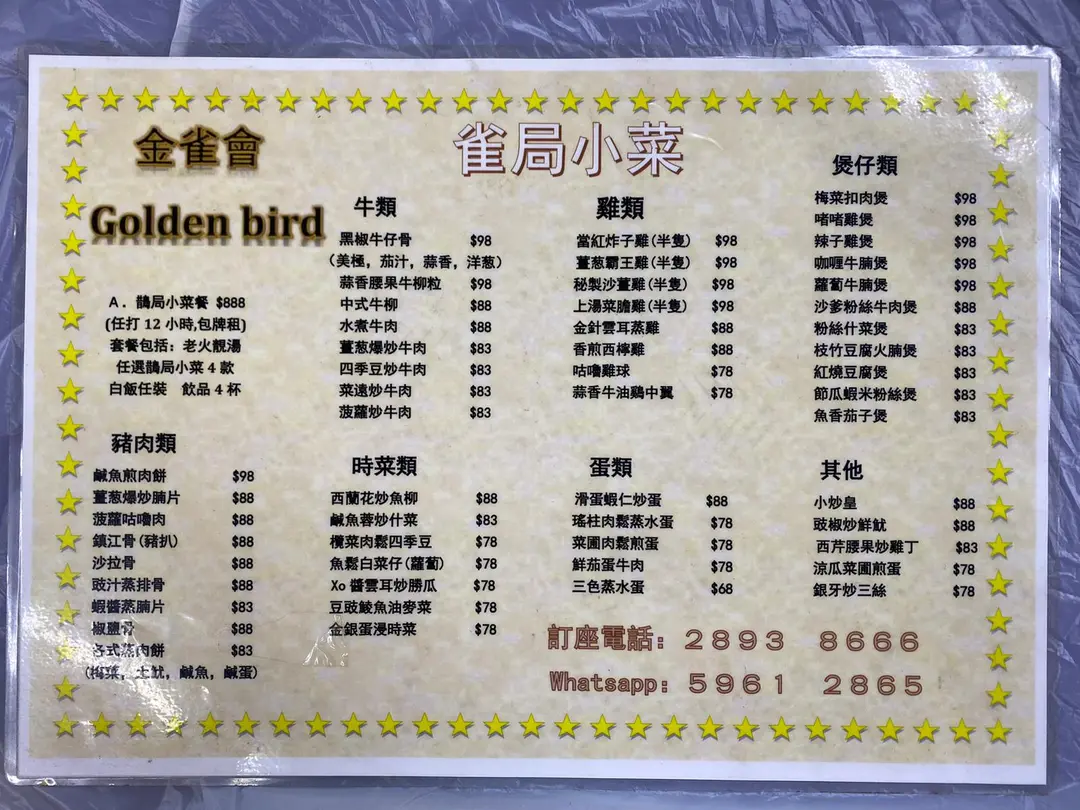 金雀會
Golden bird
雀局小菜
A．鵲局小菜餐 $888
(任打 12 小時,包牌租)
套餐包括：老火靚湯
任選鵲局小菜 4 款
白飯任裝 飲品 4 杯
牛類
黑椒牛仔骨 $98
(美極，茄汁，蒜香，洋葱)
蒜香腰果牛柳粒 $98
中式牛柳 $88
水煮牛肉 $88
薑葱爆炒牛肉 $83
四季豆炒牛肉 $83
菜遠炒牛肉 $83
菠蘿炒牛肉 $83
雞類
當紅炸子雞(半隻) $98
薑葱霸王雞(半隻) $98
秘製沙薑雞(半隻) $98
上湯菜膽雞(半隻) $98
金針雲耳蒸雞 $88
香煎西檸雞 $88
咕嚕雞球 $78
蒜香牛油鷄中翼 $78
煲仔類
梅菜扣肉煲 $98
啫啫雞煲 $98
辣子雞煲 $98
咖喱牛腩煲 $98
蘿蔔牛腩煲 $98
沙爹粉絲牛肉煲 $88
粉絲什菜煲 $83
枝竹豆腐火腩煲 $83
紅燒豆腐煲 $83
節瓜蝦米粉絲煲 $83
魚香茄子煲 $83
豬肉類
鹹魚煎肉餅 $98
薑葱爆炒腩片 $88
菠蘿咕嚕肉 $88
鎮江骨(豬扒) $88
沙拉骨 $88
豉汁蒸排骨 $88
蝦醬蒸腩片 $83
椒鹽骨 $88
各式蒸肉餅 $83
(梅菜，土魷，鹹魚，鹹蛋)
時菜類
西蘭花炒魚柳 $88
鹹魚蓉炒什菜 $83
欖菜肉鬆四季豆 $78
魚鬆白菜仔(蘿蔔) $78
Xo 醬雲耳炒勝瓜 $78
豆豉鯪魚油麥菜 $78
金銀蛋浸時菜 $78
蛋類
滑蛋蝦仁炒蛋 $88
瑤柱肉鬆蒸水蛋 $78
菜圃肉鬆煎蛋 $78
鮮茄蛋牛肉 $78
三色蒸水蛋 $68
其他
小炒皇 $88
豉椒炒鮮魷 $88
西芹腰果炒雞丁 $83
涼瓜菜圃煎蛋 $78
銀牙炒三絲 $78
訂座電話：２８９３ ８６６６
Whatsapp：５９６１ ２８６５